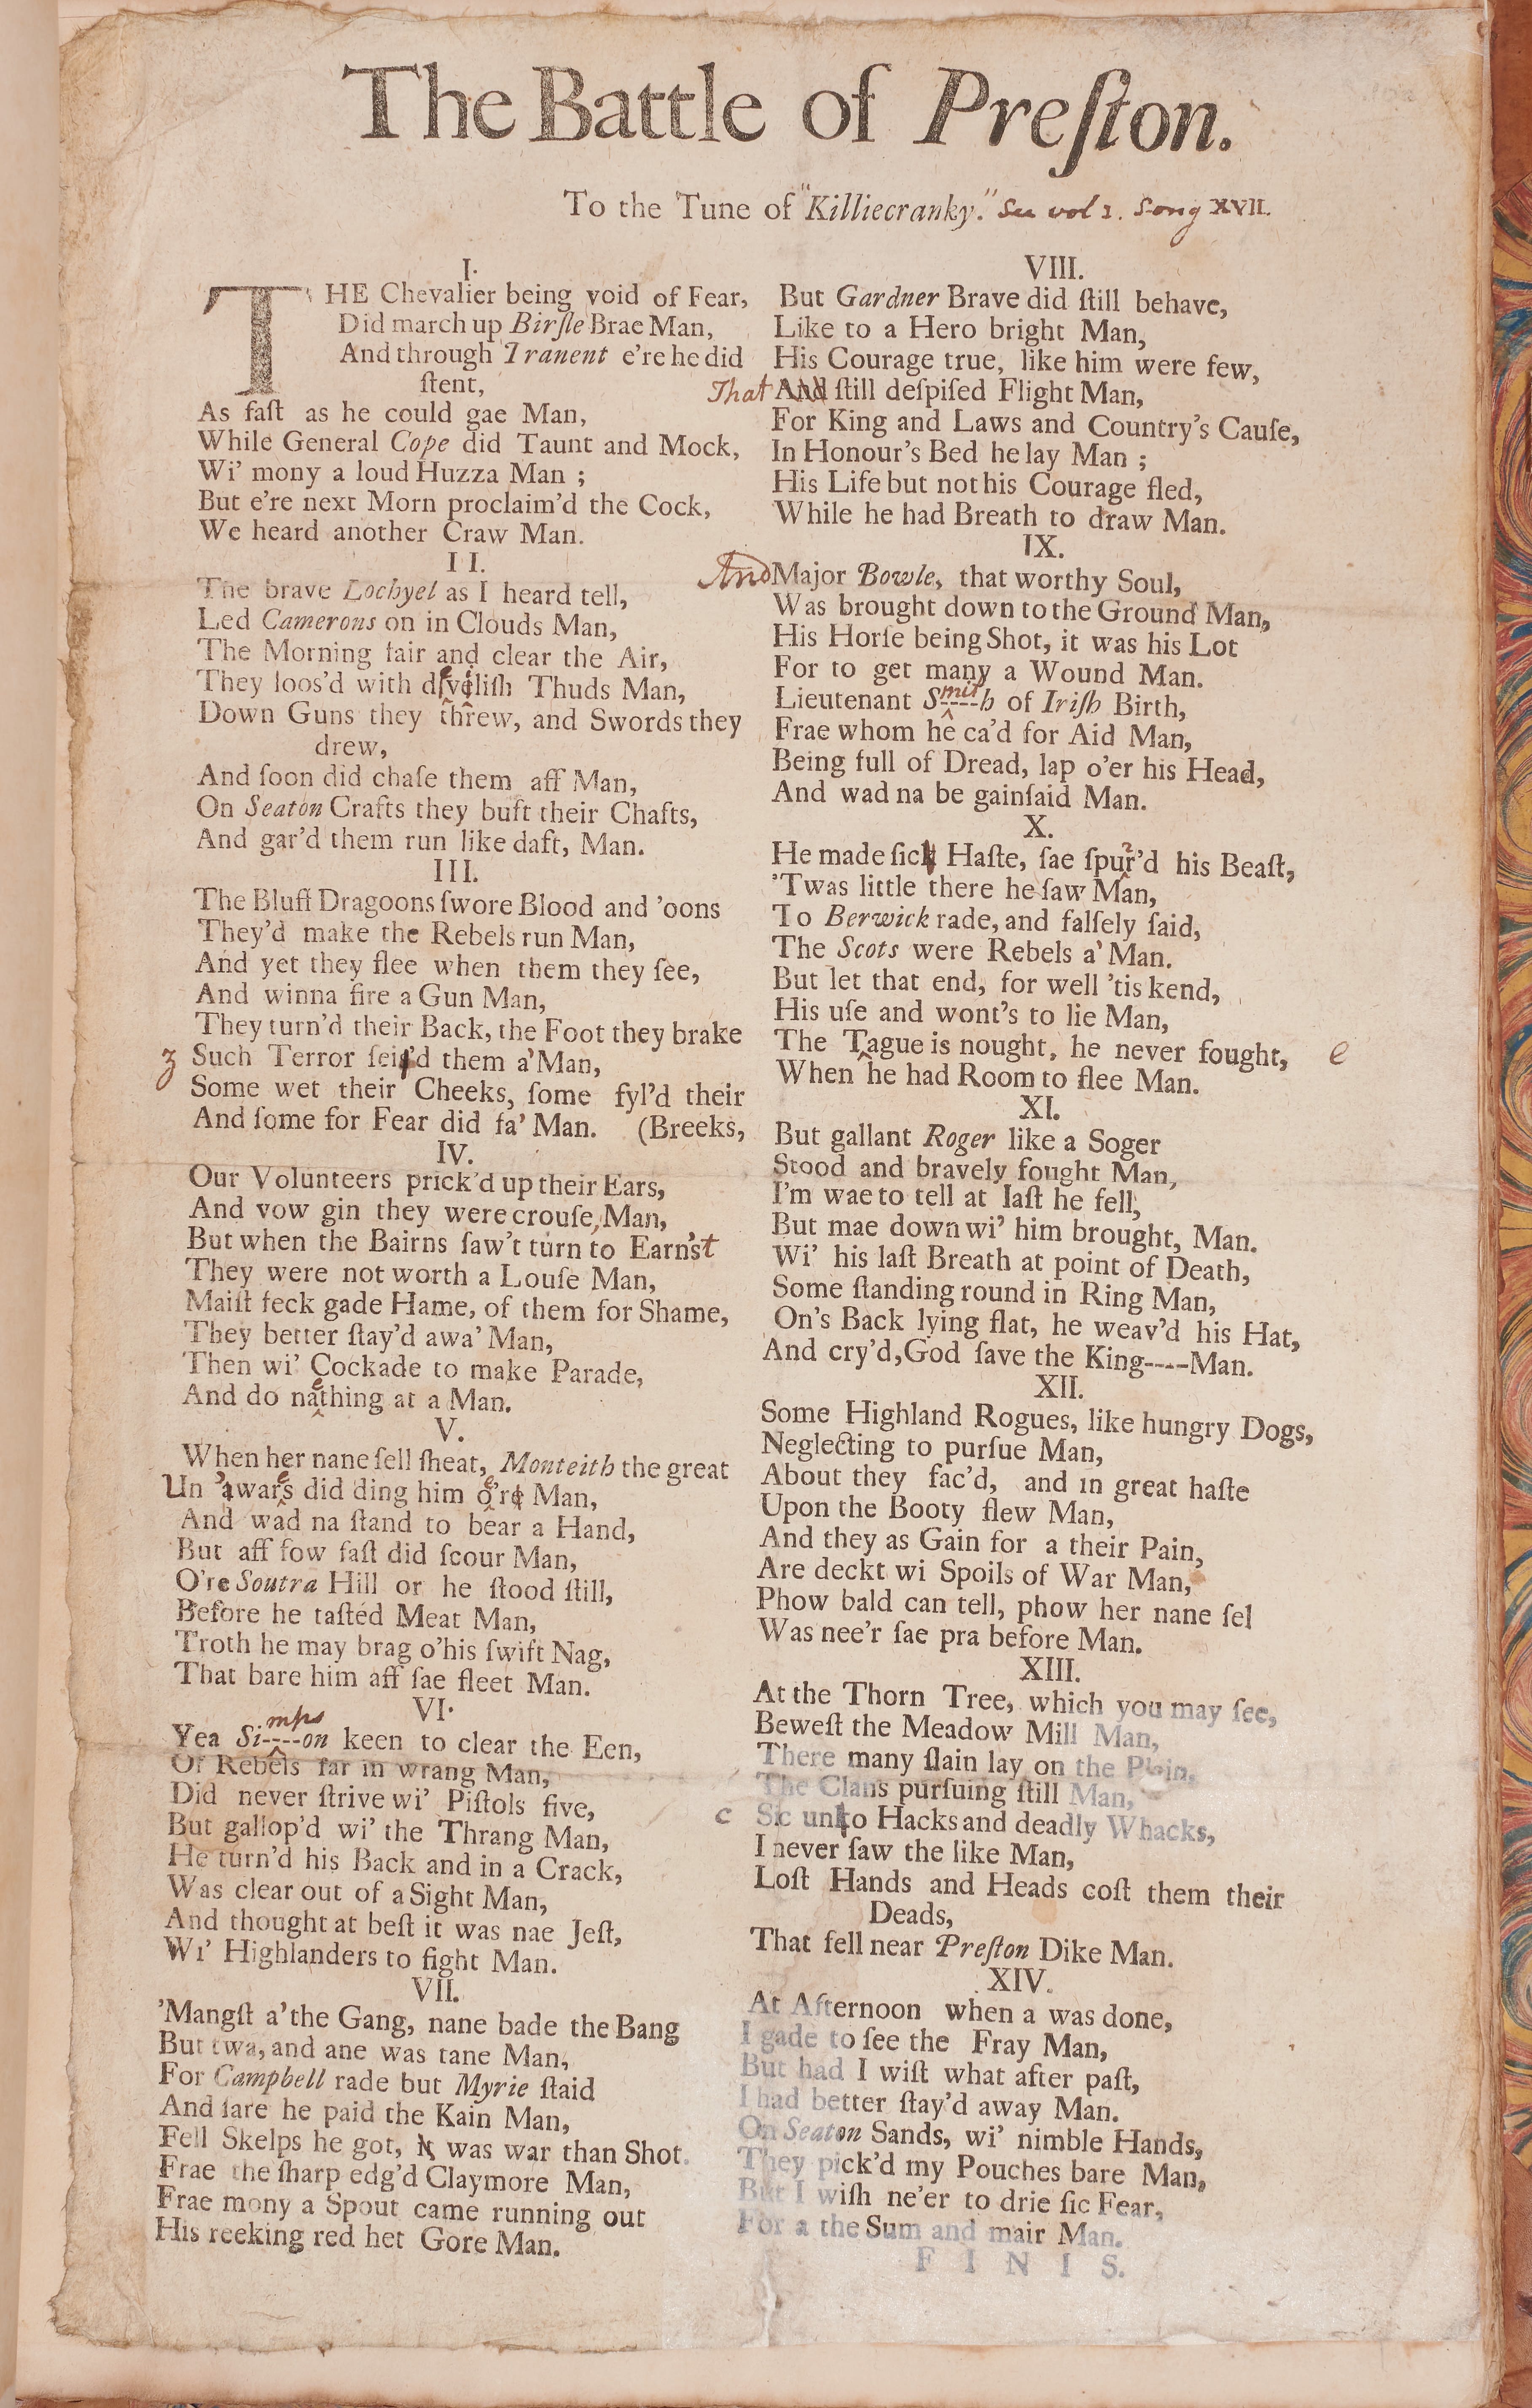 The Battle of Preſton.
To the Tune of "Killiecranky." See vol 2. Song XVII.
I.
THE Chevalier being void of Fear,
Did march up Birſle Brae Man,
And through Tranent e're he did
ſtent,
As faſt as he could gae Man,
While General Cope did Taunt and Mock,
Wi' mony a loud Huzza Man ;
But e're next Morn proclaim'd the Cock,
We heard another Craw Man.
II.
The brave Lochyel as I heard tell,
Led Camerons on in Clouds Man,
The Morning fair and clear the Air,
They loos'd with deviliſh Thuds Man,
Down Guns they threw, and Swords they
drew,
And ſoon did chaſe them aff Man,
On Seaton Crafts they buft their Chafts,
And gar'd them run like daft, Man.
III.
The Bluff Dragoons ſwore Blood and 'oons
They'd make the Rebels run Man,
And yet they flee when them they ſee,
And winna fire a Gun Man,
They turn'd their Back, the Foot they brake
z Such Terror ſeiz'd them a' Man,
Some wet their Cheeks, ſome fyl'd their
And ſome for Fear did fa' Man. (Breeks,
IV.
Our Volunteers prick'd up their Ears,
And vow gin they were crouſe, Man,
But when the Bairns ſaw't turn to Earn'st
They were not worth a Louſe Man,
Maiſt feck gade Hame, of them for Shame,
They better ſtay'd awa' Man,
Then wi' Cockade to make Parade,
And do naething at a Man.
V.
When her nane ſell ſheat, Monteith the great
Un 'awares did ding him o'er Man,
And wad na ſtand to bear a Hand,
But aff fow faſt did ſcour Man,
O're Soutra Hill or he ſtood ſtill,
Before he taſted Meat Man,
Troth he may brag o'his ſwift Nag,
That bare him aff ſae fleet Man.
VI.
Yea Si----on mps keen to clear the Een,
Of Rebels far in wrang Man,
Did never ſtrive wi' Piſtols five,
But gallop'd wi' the Thrang Man,
He turn'd his Back and in a Crack,
Was clear out of a Sight Man,
And thought at beſt it was nae Jeſt,
Wi' Highlanders to fight Man.
VII.
'Mangſt a' the Gang, nane bade the Bang
But twa, and ane was tane Man,
For Campbell rade but Myrie ſtaid
And ſare he paid the Kain Man,
Fell Skelps he got, was war than Shot.
Frae the ſharp edg'd Claymore Man,
Frae mony a Spout came running out
His reeking red het Gore Man.
VIII.
But Gardner Brave did ſtill behave,
Like to a Hero bright Man,
His Courage true, like him were few,
That And ſtill deſpiſed Flight Man,
For King and Laws and Country's Cauſe,
In Honour's Bed he lay Man ;
His Life but not his Courage fled,
While he had Breath to draw Man.
IX.
And Major Bowle, that worthy Soul,
Was brought down to the Ground Man,
His Horſe being Shot, it was his Lot
For to get many a Wound Man.
Lieutenant S----h mit of Iriſh Birth,
Frae whom he ca'd for Aid Man,
Being full of Dread, lap o'er his Head,
And wad na be gainſaid Man.
X.
He made ſick Haſte, ſae ſpur'd his Beaſt,
'Twas little there he ſaw Man,
To Berwick rade, and falſely ſaid,
The Scots were Rebels a' Man.
But let that end, for well 'tis kend,
His uſe and wont's to lie Man,
The Tague is nought, he never fought, e
When he had Room to flee Man.
XI.
But gallant Roger like a Soger
Stood and bravely fought Man,
I'm wae to tell at laſt he fell,
But mae down wi' him brought, Man.
Wi' his laſt Breath at point of Death,
Some ſtanding round in Ring Man,
On's Back lying flat, he weav'd his Hat,
And cry'd, God ſave the King----Man.
XII.
Some Highland Rogues, like hungry Dogs,
Neglecting to purſue Man,
About they fac'd, and in great haſte
Upon the Booty flew Man,
And they as Gain for a their Pain,
Are deckt wi Spoils of War Man,
Phow bald can tell, phow her nane ſel
Was nee'r ſae pra before Man.
XIII.
At the Thorn Tree, which you may ſee,
Beweſt the Meadow Mill Man,
There many ſlain lay on the Plain,
The Clans purſuing ſtill Man,
c Sic unko Hacks and deadly Whacks,
I never ſaw the like Man,
Loſt Hands and Heads coſt them their
Deads,
That fell near Preſton Dike Man.
XIV.
At Afternoon when a was done,
I gade to ſee the Fray Man,
But had I wiſt what after paſt,
I had better ſtay'd away Man.
On Seaton Sands, wi' nimble Hands,
They pick'd my Pouches bare Man,
But I wiſh ne'er to drie ſic Fear,
For a the Sum and mair Man.
FINIS.